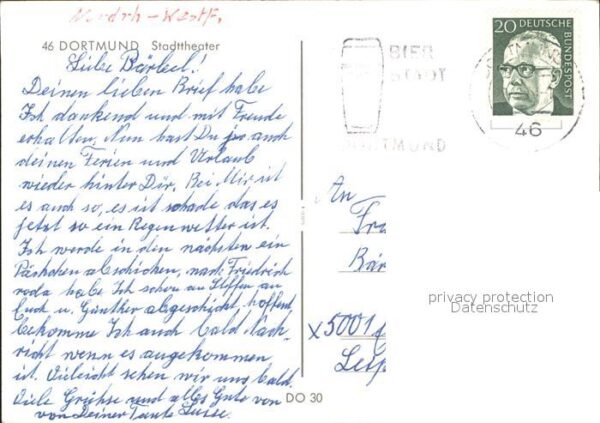 Nordrh-Westf.
46 DORTMUND Stadttheater
Liebe Bärbel!
Deinen lieben Brief habe
Ich dankend und mit Freude
erhalten, Nun hast Du ja auch
deinen Ferien und Urlaub
wieder hinter Dir, Bei Mir ist
es auch so, es ist schade das es
jetzt so ein Regenwetter ist.
Ich werde in den nächsten ein
Päckchen abschicken, nach Friedrich
roda habe Ich schon an Steffen an
Euch u. Günther abgeschickt, hoffend
bekomme Ich auch bald Nach-
richt wenn es angekommen
ist. Vieleicht sehen wir uns bald.
Viele Grühse und alles Gute von
von Deiner Tante Luise.
DO 30
BIER
STADT
DORTMUND
20 DEUTSCHE
BUNDESPOST
46
An
Fr
Bär
x 5001
privacy protection
Datenschutz